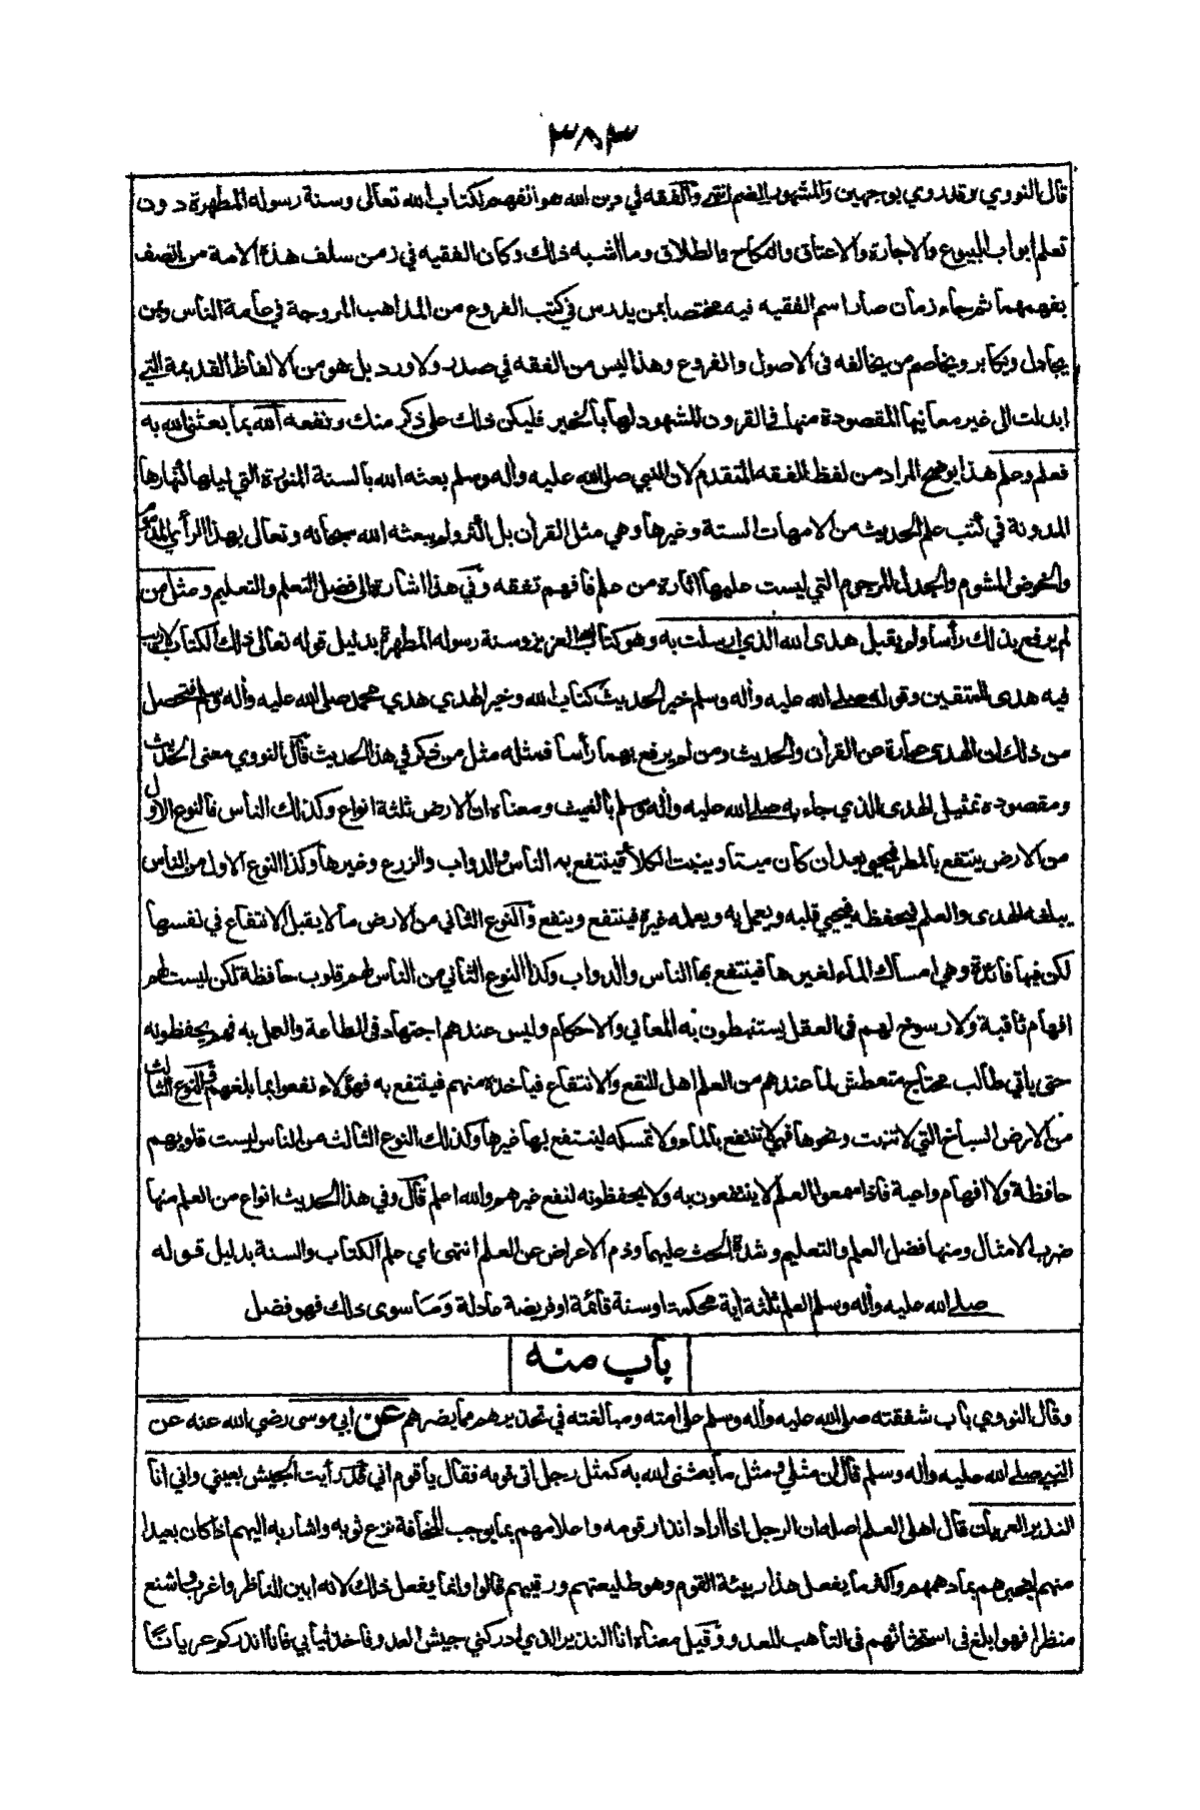 ٣٨٣
قال النووي وقد روي بوجهين والمشهور الضم انتهى والفقه في دين الله هو التفهم لكتاب الله تعالى وسنة رسوله المطهرة دون
تعلم ابواب البيوع والاجارة والاعتاق والنكاح والطلاق وما اشبه ذلك وكان الفقيه في زمن سلف هذه الامة من اتصف
بفهمهما ثم جاء زمان صار اسم الفقيه فيه مختصا بمن يدرس في كتب الفروع من المذاهب المروجة في عامة الناس ومن
يجادل ويكابر ويخاصم من يخالفه في الاصول والفروع وهذا ليس من الفقه في صدر ولا ورد بل هو من الالفاظ القديمة التي
ابدلت الى غير معانيها المقصودة منها في القرون المشهود لها بالخير فليكن ذلك على ذكر منك ونفعه الله بما بعثني الله به
فعلم وعلم هذا يوضح المراد من لفظ الفقه المتقدم لان النبي صلى الله عليه وأله وسلم بعثه الله بالسنة المنورة التي ليلها كنهارها
المدونة في كتب علم الحديث من الامهات الستة وغيرها وهي مثل القرأن بل اكثر ولم يبعثه الله سبحانه وتعالى بهذا الرأي المذموم
والخوض المشوم والجدل المرجوم التي ليست عليها اثارة من علم فافهم تفقه وفي هذا اشارة الى فضل التعلم والتعليم ومثل من
لم يرفع بذلك رأسا ولم يقبل هدى الله الذي ارسلت به وهو كتاب الله العزيز وسنة رسوله المطهرة بدليل قوله تعالى ذلك الكتاب لا ريب
فيه هدى للمتقين وقوله صلى الله عليه وأله وسلم خير الحديث كتاب الله وخير الهدي هدي محمد صلى الله عليه وأله وسلم فتحصل
من ذلك ان الهدى عبارة عن القرأن والحديث ومن لم يرفع بهما رأسا فمثله مثل من ذكر في هذا الحديث قال النووي معنى الحديث
ومقصوده تمثيل الهدى الذي جاء به صلى الله عليه وأله وسلم بالغيث ومعناه ان الارض ثلثة انواع وكذلك الناس فالنوع الاول
من الارض ينتفع بالمطر فيحيى بعد ان كان ميتا وينبت الكلأ فينتفع به الناس والدواب والزرع وغيرها وكذا النوع الاول من الناس
يبلغه الهدى والعلم فيحفظه فيحيي قلبه ويعمل به ويعلمه غيره فينتفع وينفع والنوع الثاني من الارض ما لا يقبل الانتفاع في نفسها
لكن فيها فائدة وهي امساك الماء لغيرها فينتفع بها الناس والدواب وكذا النوع الثاني من الناس لهم قلوب حافظة لكن ليست لهم
افهام ثاقبة ولا رسوخ لهم في العقل يستنبطون به المعاني والاحكام وليس عندهم اجتهاد في الطاعة والعمل به فهم يحفظونه
حتى ياتي طالب محتاج متعطش لما عندهم من العلم اهل للنفع والانتفاع فياخذه منهم فينتفع به فهؤلاء نفعوا بما بلغهم والنوع الثالث
من الارض السباخ التي لا تنبت ونحوها فهي لا تنتفع بالماء ولا تمسكه لينتفع بها غيرها وكذلك النوع الثالث من الناس ليست قلوبهم
حافظة ولا افهام واعية فاذا سمعوا العلم لا ينتفعون به ولا يحفظونه لنفع غيرهم والله اعلم قال وفي هذا الحديث انواع من العلم منها
ضرب الامثال ومنها فضل العلم والتعليم وشدة الحث عليهما وذم الاعراض عن العلم انتهى اي علم الكتاب والسنة بدليل قوله
صلى الله عليه وأله وسلم العلم ثلثة أية محكمة او سنة قائمة او فريضة عادلة وما سوى ذلك فهو فضل
باب منه
وقال النووي باب شفقته صلى الله عليه وأله وسلم على امته ومبالغته في تحذيرهم مما يضرهم عن ابي موسى رضي الله عنه عن
النبي صلى الله عليه وأله وسلم قال ان مثلي ومثل ما بعثني الله به كمثل رجل اتى قومه فقال يا قوم اني قد رأيت الجيش بعيني واني انا
النذير العريان قال اهل العلم اصله ان الرجل اذا اراد انذار قومه واعلامهم بما يوجب المخافة نزع ثوبه واشار به اليهم اذا كان بعيدا
منهم ليخبرهم بما دهمهم واكثر ما يفعل هذا ربيئة القوم وهو طليعتهم ورقيبهم قالوا وانما يفعل ذلك لانه ابين للناظر واغرب واشنع
منظرا فهو ابلغ في استحثاثهم في التأهب للعدو وقيل معناه انا النذير الذي ادركني جيش العدو فاخذ ثيابي فانا انذركم عريانا